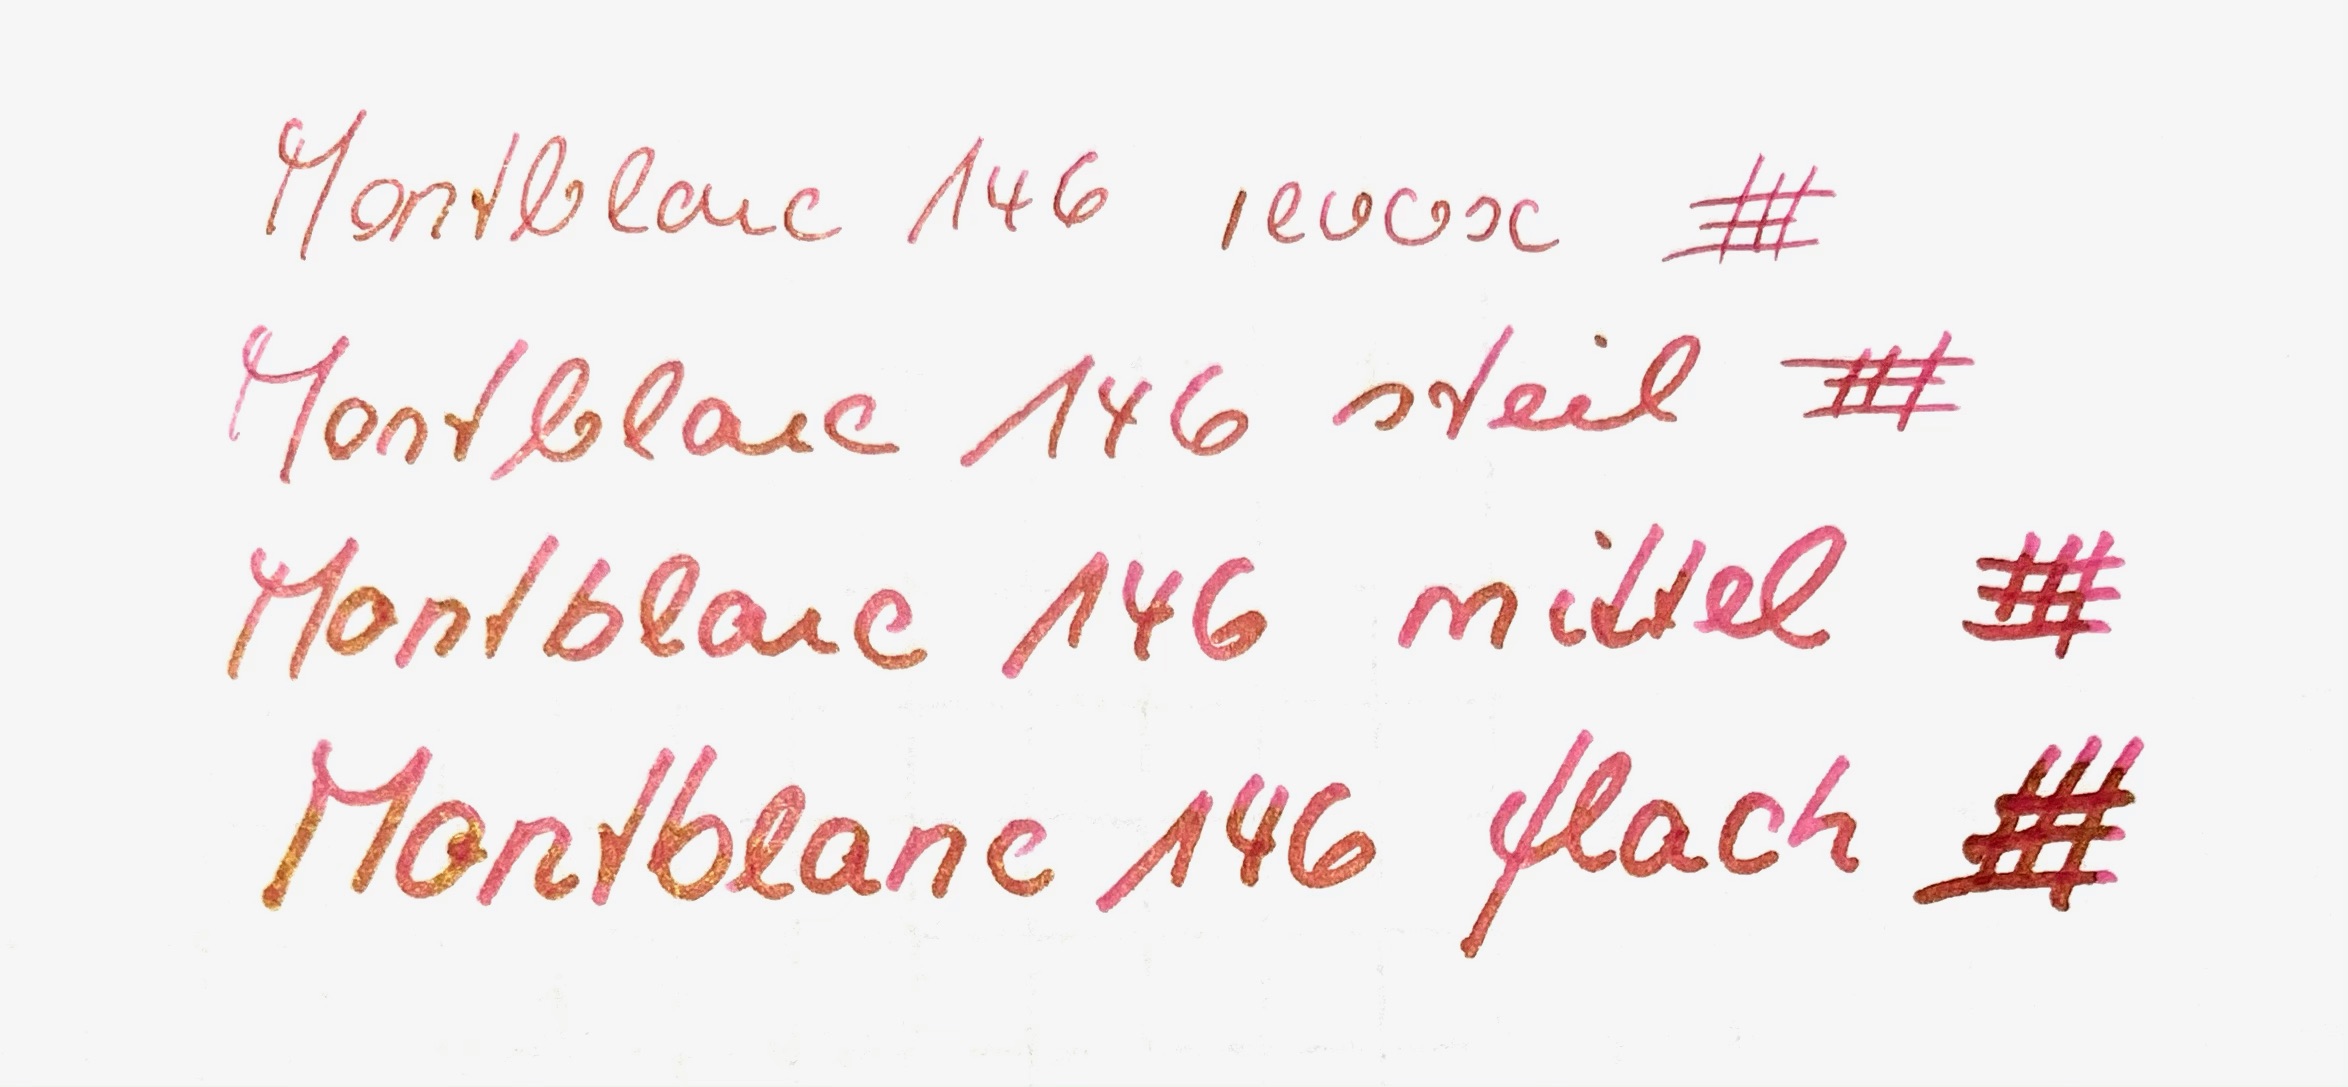 Montblanc 146 revers #
Montblanc 146 steil #
Montblanc 146 mittel #
Montblanc 146 flach #